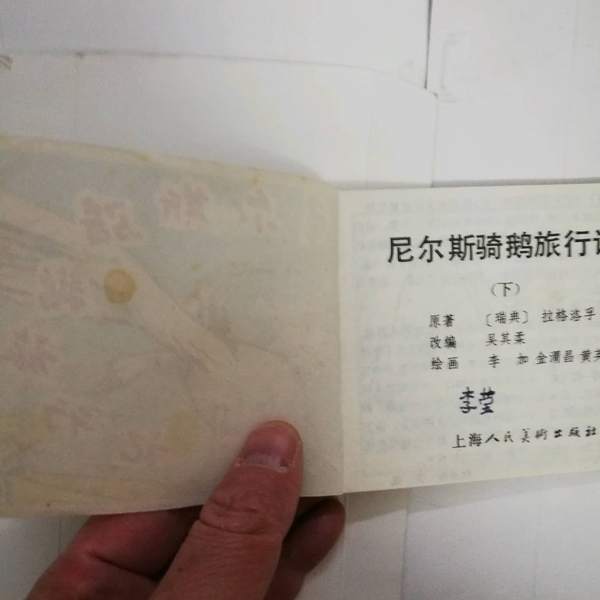 尼尔斯骑鹅旅行
（下）
原著 〔瑞典〕 拉格洛孚
改编 吴其柔
绘画 李 加 金澜昌 黄英
李莹
上海人民美術出版社